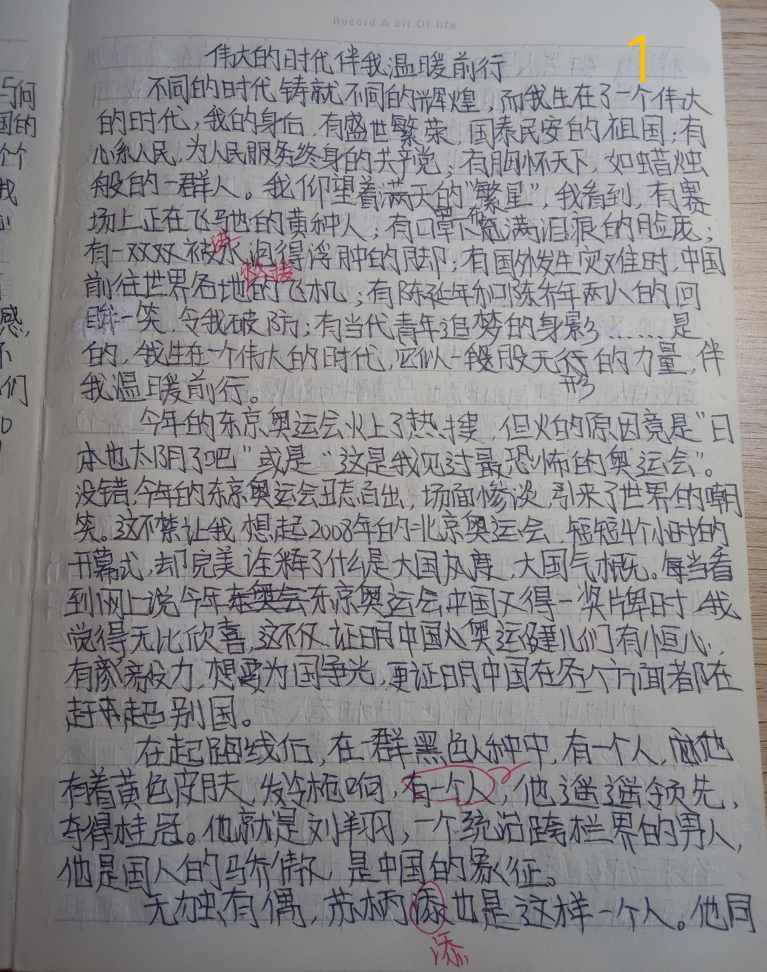 Record A bit Of life
1
伟大的时代伴我温暖前行
不同的时代铸就不同的辉煌,而我生在了一个伟大
的时代,我的身后,有盛世繁荣,国泰民安的祖国;有
心系人民,为人民服务终身的共产党;有胸怀天下,如蜡烛
般的一群人。我仰望着满天的“繁星”,我看到,有赛
场上正在飞驰的黄种人;有口罩下布满泪痕的脸庞;
有一双双被水泡得浮肿的脚;有国外发生灾难时,中国
前往世界各地的飞机;有陈延年和陈乔年两人的回
眸一笑,令我破防;有当代青年追梦的身影……是
的,我生在一个伟大的时代,它似一股股无形的力量,伴
我温暖前行。
今年的东京奥运会火上了热搜,但火的原因竟是“日
本也太阴了吧”或是“这是我见过最恐怖的奥运会”。
没错,今年的东京奥运会丑态百出,场面惨淡,引来了世界的嘲
笑。这不禁让我想起2008年的北京奥运会,短短4个小时的
开幕式,却完美诠释了什么是大国风度,大国气概。每当看
到网上说今年东京奥运会中国又得一奖牌时,我
觉得无比欣喜,这不仅证明中国人奥运健儿们有恒心,
有毅力,想要为国争光,更证明中国在各个方面都在
赶超别国。
在起跑线后,在一群黑色人种中,有一个人,他
有着黄色皮肤,发令枪响,有一个人,他遥遥领先,
夺得桂冠。他就是刘翔,一个统治跨栏界的男人,
他是国人的骄傲,是中国的象征。
无独有偶,苏炳添也是这样一个人。他同
添